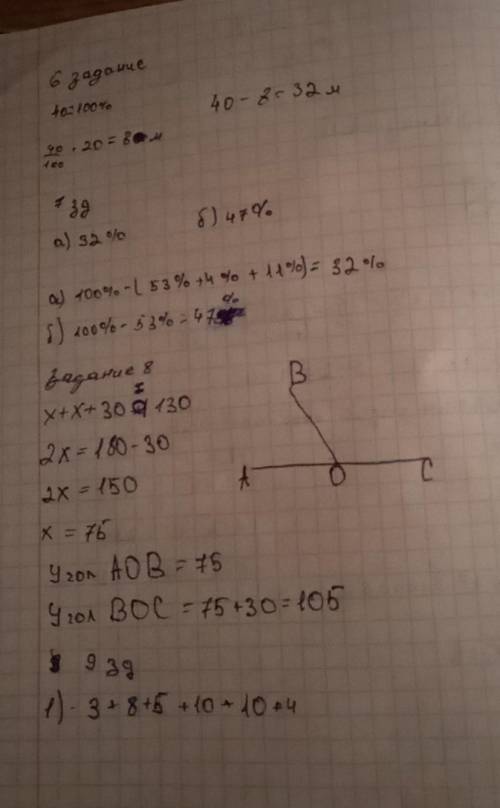 6 задание
40=100% 40 - 8 = 32 м
40/100 · 20 = 8 м
7 зд
а) 32% б) 47%
а) 100% - (53% + 4% + 11%) = 32%
б) 100% - 53% = 47%
Задание 8
x + x + 30 = 130
2x = 180 - 30
2x = 150
x = 75
B
A O C
Угол AOB = 75
Угол BOC = 75 + 30 = 105
9 зд
1) - 3 + 8 + 5 + 10 + 10 + 4